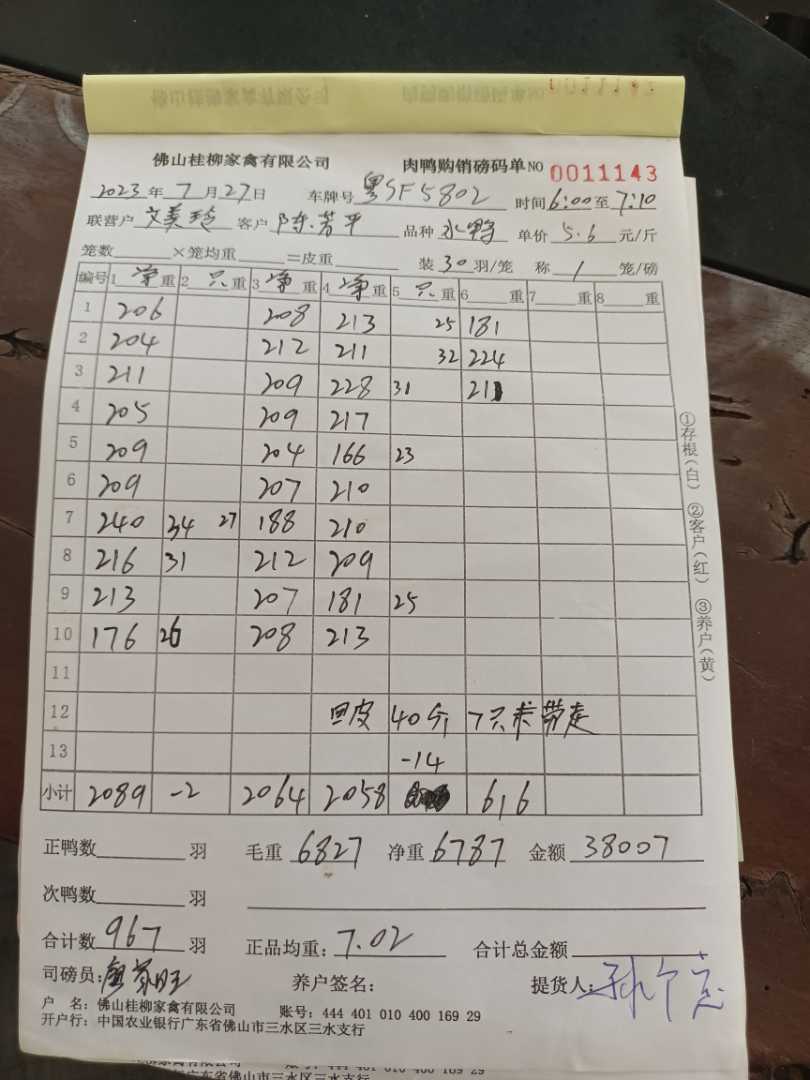 佛山桂柳家禽有限公司 肉鸭购销磅码单NO 0011143
2023年7月27日 车牌号 粤SF5802 时间6:00至7:10
联营户 客户 陈芳平 品种 水鸭 单价 5.6 元/斤
笼数 ×笼均重 =皮重 装30羽/笼 称 1 笼/磅
编号 1 净重 2 只重 3 净重 4 净重 5 只重 6 重 7 重 8 重
1 206 208 213 25 181
2 204 212 211 32 224
3 211 209 228 31 211
4 205 209 217
5 209 204 166 23
6 209 207 210
7 240 34 27 188 210
8 216 31 212 209
9 213 207 181 25
10 176 26 208 213
11
12 回皮 40斤 7只未带走
13 -14
小计 2089 -2 2064 2058 616
正鸭数 羽 毛重 6827 净重 6787 金额 38007
次鸭数 羽
合计数 967 羽 正品均重: 7.02 合计总金额
司磅员: 养户签名: 提货人:
户 名: 佛山桂柳家禽有限公司 账号: 444 401 010 400 169 29
开户行: 中国农业银行广东省佛山市三水区三水支行
①存根(白) ②客户(红) ③养户(黄)